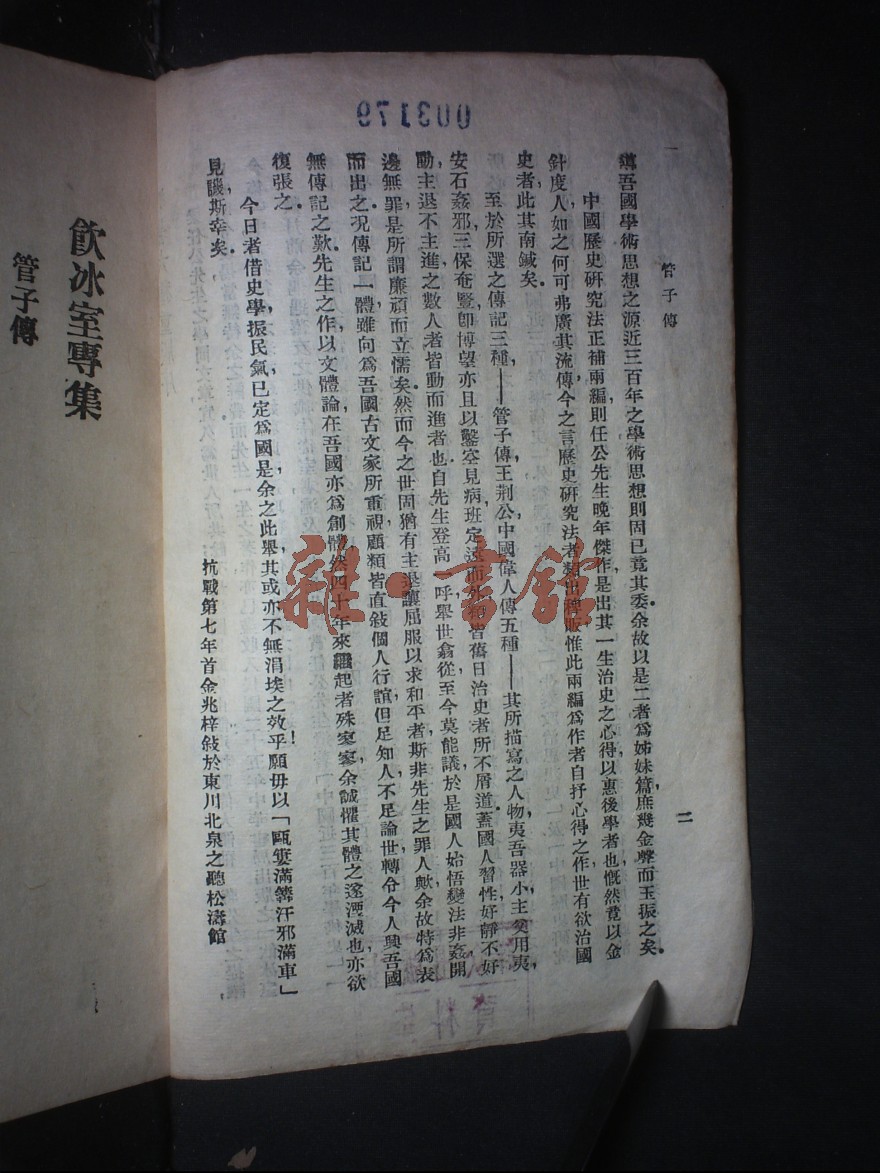 003179
管子傳
二
導吾國學術思想之源近三百年之學術思想則固已竟其委余故以是二者爲姊妹篇庶幾金聲而玉振之矣。
中國歷史研究法正補兩編則任公先生晚年傑作是出其一生治史之心得以惠後學者也慨然竟以金
針度人如之何可弗廣其流傳今之言歷史研究法者類出稗販惟此兩編爲作者自抒心得之作世有欲治國
史者此其南鍼矣。
至於所選之傳記三種——管子傳王荆公中國偉人傳五種——其所描寫之人物夷吾器小主父用夷,
安石姦邪三保奄豎卽博望亦且以鑿空見病班定遠而外稱皆舊日治史者所不屑道蓋國人習性好靜不好
動主退不主進之數人者皆動而進者也自先生登高一呼舉世翕從至今莫能議於是國人始悟變法非姦開
邊無罪是所謂廉頑而立懦矣。然而今之世固猶有主退讓屈服以求和平者斯非先生之罪人歟余故特爲表
而出之。況傳記一體雖向爲吾國古文家所重視顧類皆直敍個人行誼但足知人不足論世轉令今人興吾國
無傳記之歎。先生之作以文體論在吾國亦爲創體然四十年來繼起者殊寥寥余誠懼其體之遂湮滅也亦欲
復張之。
今日者借史學,振民氣,已定爲國是余之此舉其或亦不無涓埃之效乎!願毋以「甌窶滿篝汙邪滿車」
見譏斯幸矣。
抗戰第七年首金兆梓敍於東川北泉之聽松濤館
飲冰室專集
管子傳
雜·書館